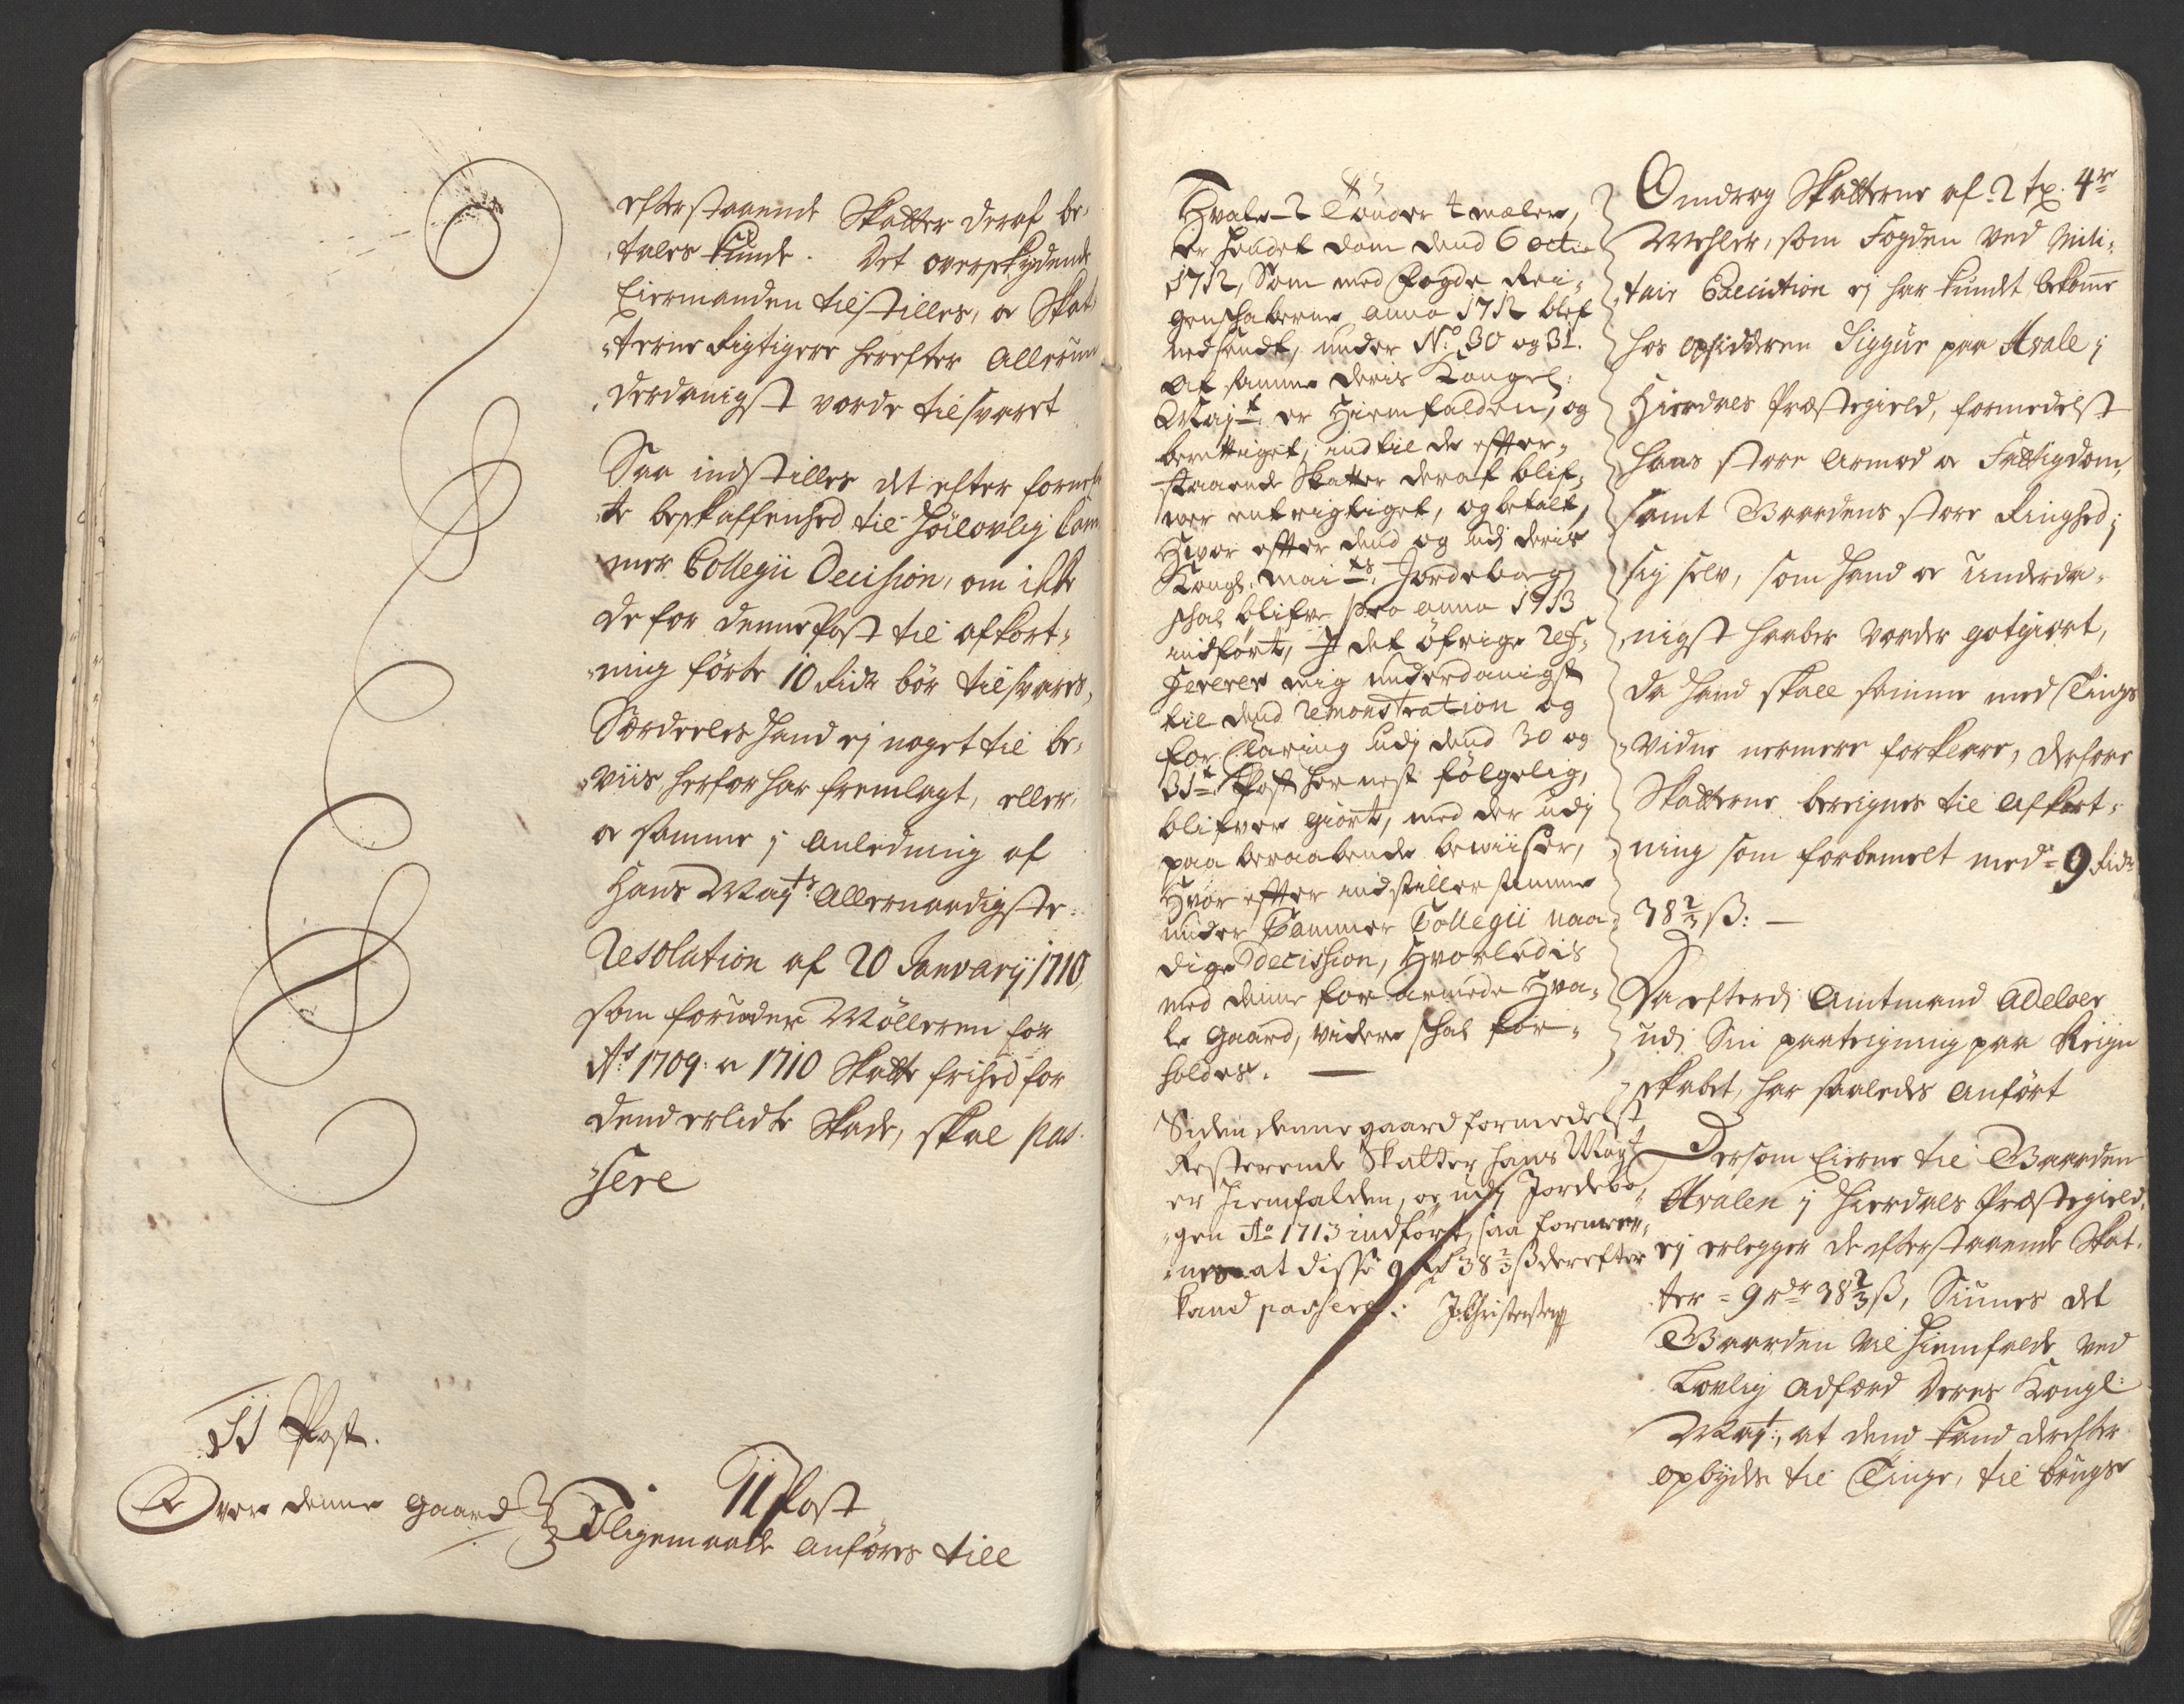 efterstaaende Skatter deraf be-
tales kunde. Det overskydende
Eiermanden tilstilles, og Skat-
terne Rigtigere herefter allerun
derdanigst vorde tilsvaret
Saa indstilles det efter formel
te beskaffenhed til Høilovlig Cam
mer Collegii Decision, om ikke
de for denne Post til afkort-
ning førte 10 Rdr bør tilsvares,
Særdeeles hand ej noget til be-
viis herfor har fremlagt, eller
og samme i anledning af
Hans Mayts: Allernaadigste
Resolution af 20 Januarij 1710,
som foruden Mølleren for
Ao 1709: og 1710 Skatte frihed for
dend erlidte Skade, skal pas-
sere
11 Post.
Over denne gaard
11 Post
Dligemaade anføres till
Hvale 2 Tønder 4 mæler,
er hendet dom dend 6 octr
1712, Som med Fogde Rei-
genschaberne anno 1712 blef
nedsendt, under No: 30 og 31.
at samme deris Kongel:
Mayt: er Hiemfalden, og
berettiget, indtil de effter-
staaende Skatter deraf blif-
ver entrigtiget, og betalt,
Hvor effter dend og udj deris
Kongl: maits: Jordebog
schal blifve pro anno 1713
indført, I det øfrige ref-
Hererer mig underdanigst
til dend remonstration og
forClaring udj dend 30 og
31te Post her nest følgelig,
blifver giort, med der udj
paa beraabende beviiser,
Hvor effter indstilles samme
under Cammer Collegii naa-
dige decission, Hvorledis
med denne for armede Hva-
le gaard, videre schal for-
holdes. —
Siden denne gaard formedelst
Resterende Skatter hans Mayt
er hiemfalden, og udj Jordebo-
gen Ao 1713 indført, saa formee-
nes at disse 9 Rd 38⅔ ß derefter
kand passere:
Omdrog Skatterne af 2 tp. 4re
Mehler, som Fogden ved Mili-
tair Execution ej har kundt bekome
hos opsidderen Siggur paa Hvale i
Hierdals Præstegield, formedelst
hans store armod og Fattigdom,
samt Gaardens store Ringhed i
sig selv, som hand og underda-
nigst haaber vorder gotgiort,
da hand skall samme med Tings
vidne nermere forklare, derfore
Skatterne bereignes til afkort-
ning som forbemelt med = 9 Rdr
38⅔ ß: —
Da efterdi Amtmand Adelaer
udi Sin paateigning paa Reign
skabet, har saaledes anført
Dersom Eierne til Gaarden
Hvalen i Hierdals Præstegield,
ej erlegger de efterstaaende Skat-
ter = 9 rdr 38⅔ ß, Siunes det
Gaarden vil hiemfalde ved
Lovlig adferd Deres Kongl:
Mayt:, at dend kand derefter
opbydes til Tinge, til bøxle